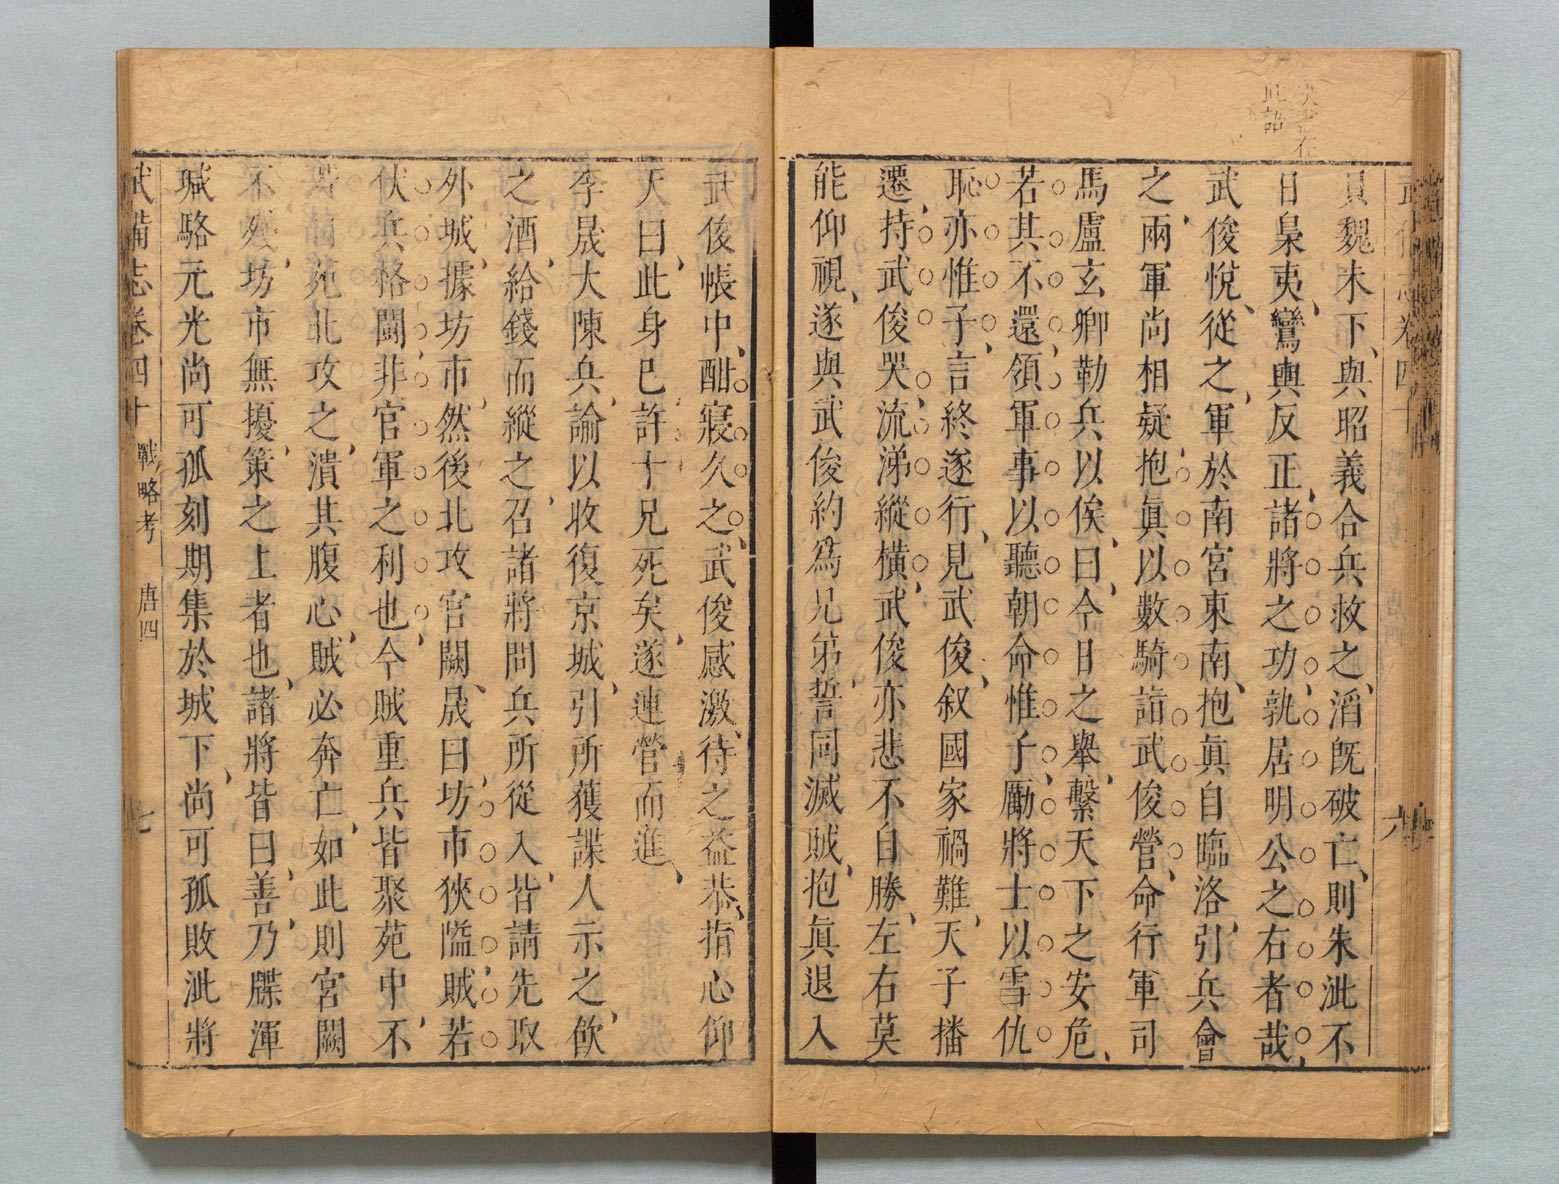 此語
貝魏未下與昭義合兵救之滔既破亡則朱泚不
日梟夷鸞輿反正諸將之功孰居明公之右者哉
武俊悅從之軍於南宮東南抱眞自臨洛引兵會
之兩軍尚相疑抱眞以數騎詣武俊營命行軍司
馬盧玄卿勒兵以俟曰今日之舉繫天下之安危
若其不還領軍事以聽朝命惟子勵將士以雪仇
恥亦惟子言終遂行見武俊叙國家禍難天子播
遷持武俊哭流涕縱橫武俊亦悲不自勝左右莫
能仰視遂與武俊約爲兄弟誓同滅賊抱眞退入
武俊帳中酣寢久之武俊感激待之益恭指心仰
天曰此身已許十兄死矣遂連營而進
李晟大陳兵諭以收復京城引所獲諜人示之飲
之酒給錢而縱之召諸將問兵所從入皆請先取
外城據坊市然後北攻宮闕晟曰坊市狹隘賊若
伏兵格鬭非官軍之利也今賊重兵皆聚苑中不
若自苑北攻之潰其腹心賊必奔亡如此則宮闕
不殘坊市無擾策之上者也諸將皆曰善乃牒渾
瑊駱元光尚可孤刻期集於城下尚可孤敗泚將
武備志卷四十 戰略考 唐四 七